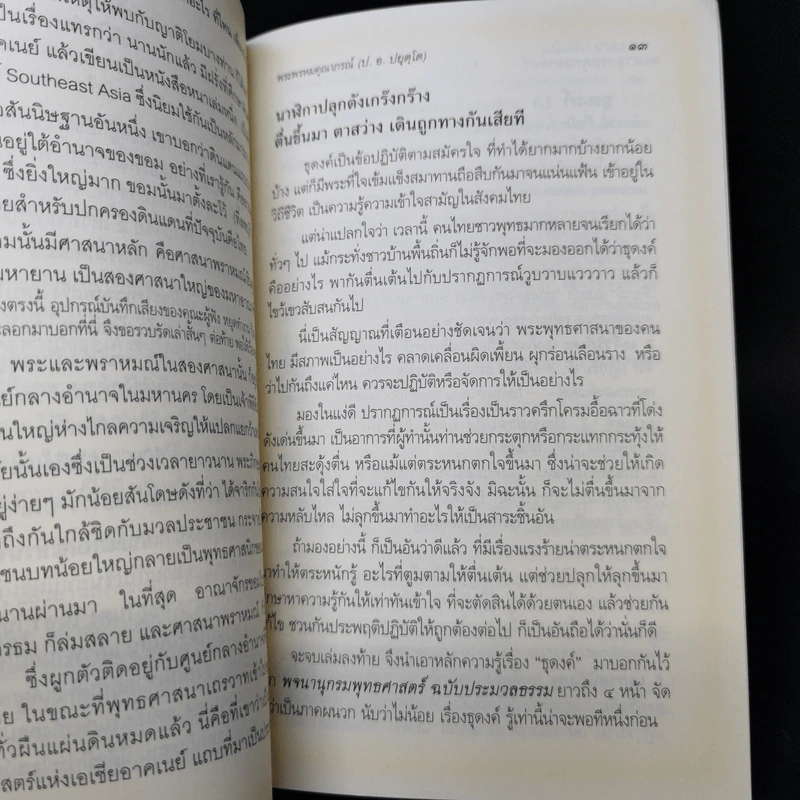 เหตุให้พบกับญาติโยมบางท่าน
เป็นเรื่องแทรกว่า นานนักแล้ว มีฝรั่งที่ศึกษา
คเนย์ แล้วเขียนเป็นหนังสือหนาเล่มหนึ่ง
Southeast Asia ซึ่งนิยมใช้กันเป็นหลัก
อสันนิษฐานอันหนึ่ง เขาบอกว่าดินแดน
อยู่ใต้อำนาจของขอม อย่างที่เรารู้กัน
ซึ่งยิ่งใหญ่มาก ขอมนั้นมาตั้งละโว้
ยสำหรับปกครองดินแดนที่ปัจจุบันคือไทย
มนั้นมีศาสนาหลัก คือศาสนาพราหมณ์
มหายาน เป็นสองศาสนาใหญ่ของมหาอาณา
งตรงนี้ อุปกรณ์บันทึกเสียงของคณะผู้ฟัง หยุดทำงาน
ะลอกมาบอกที่นี่ จึงขอรวบรัดเล่าสั้นๆ ต่อท้าย พอให้
พระและพราหมณ์ในสองศาสนานั้น ก็
ย์กลางอำนาจในมหานคร โดยเป็นเจ้าพิธี
นใหญ่ห่างไกลความเจริญให้แปลกแยกว้า
ัยนั้นเองซึ่งเป็นช่วงเวลายาวนาน พระภิกษุ
ยู่ง่ายๆ มักน้อยสันโดษดังที่ว่า ได้จาริกไป
ถึงกันใกล้ชิดกับมวลประชาชน กระจาย
ชนบทน้อยใหญ่กลายเป็นพุทธศาสนิกชน
นานผ่านมา ในที่สุด อาณาจักรขอม
กรธม ก็ล่มสลาย และศาสนาพราหมณ์
ซึ่งผูกตัวติดอยู่กับศูนย์กลางอำนาจ
ย ในขณะที่พุทธศาสนาเถรวาทเข้า
ทั่วผืนแผ่นดินหมดแล้ว นี่คือที่เขาว่า
าสตร์แห่งเอเชียอาคเนย์ แถบที่มาเป็นประ
พระพรหมคุณาภรณ์ (ป. อ. ปยุตฺโต)
๑๓
นาฬิกาปลุกดังเกร๊งกร๊าง
ตื่นขึ้นมา ตาสว่าง เดินถูกทางกันเสียที
ธุดงค์เป็นข้อปฏิบัติตามสมัครใจ ที่ทำได้ยากมากบ้างยากน้อย
บ้าง แต่ก็มีพระที่ใจเข้มแข็งสมาทานถือสืบกันมาจนแน่นแฟ้น เข้าอยู่ใน
วิถีชีวิต เป็นความรู้ความเข้าใจสามัญในสังคมไทย
แต่น่าแปลกใจว่า เวลานี้ คนไทยชาวพุทธมากหลายจนเรียกได้ว่า
ทั่วๆ ไป แม้กระทั่งชาวบ้านพื้นถิ่นก็ไม่รู้จักพอที่จะมองออกได้ว่าธุดงค์
คืออย่างไร พากันตื่นเต้นไปกับปรากฏการณ์วูบวาบแวววาว แล้วก็
ไขว้เขวสับสนกันไป
นี่เป็นสัญญาณที่เตือนอย่างชัดเจนว่า พระพุทธศาสนาของคน
ไทย มีสภาพเป็นอย่างไร คลาดเคลื่อนผิดเพี้ยน ผุกร่อนเลือนราง หรือ
ว่าไปกันถึงแค่ไหน ควรจะปฏิบัติหรือจัดการให้เป็นอย่างไร
มองในแง่ดี ปรากฏการณ์เป็นเรื่องเป็นราวคริกโครมอื้อฉาวที่โด่ง
ดังเด่นขึ้นมา เป็นอาการที่ผู้ทำนั้นท่านช่วยกระตุกหรือกระแทกกระทุ้งให้
คนไทยสะดุ้งตื่น หรือแม้แต่ตระหนกตกใจขึ้นมา ซึ่งน่าจะช่วยให้เกิด
ความสนใจใส่ใจที่จะแก้ไขกันให้จริงจัง มิฉะนั้น ก็จะไม่ตื่นขึ้นมาจาก
ความหลับไหล ไม่ลุกขึ้นมาทำอะไรให้เป็นสาระชิ้นอัน
ถ้ามองอย่างนี้ ก็เป็นอันว่าดีแล้ว ที่มีเรื่องแรงร้ายน่าตระหนกตกใจ
มาทำให้ตระหนักรู้ อะไรที่ตูมตามให้ตื่นเต้น แต่ช่วยปลุกให้ลุกขึ้นมา
ึกษาหาความรู้กันให้เท่าทันเข้าใจ ที่จะตัดสินได้ด้วยตนเอง แล้วช่วยกัน
ก้ไข ชวนกันประพฤติปฏิบัติให้ถูกต้องต่อไป ก็เป็นอันถือได้ว่านั่นก็ดี
จะจบเล่มลงท้าย จึงนำเอาหลักความรู้เรื่อง “ธุดงค์” มาบอกกันไว้
ก พจนานุกรมพุทธศาสตร์ ฉบับประมวลธรรม ยาวถึง ๔ หน้า จัด
ว่าเป็นภาคผนวก นับว่าไม่น้อย เรื่องธุดงค์ รู้เท่านี้น่าจะพอทีหนึ่งก่อน